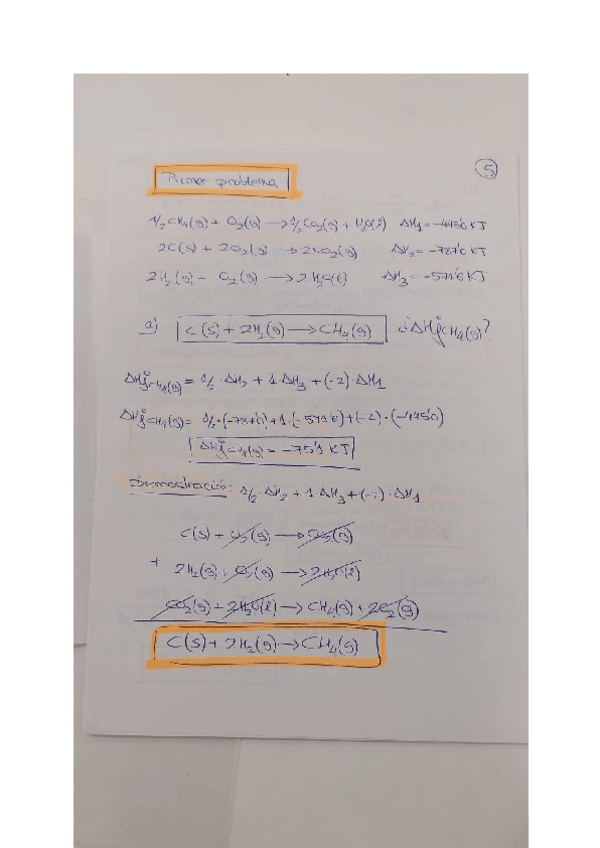 5
Primer problema
1/2 CH₄(g) + O₂(g) → 1/2 CO₂(g) + H₂O(l) ΔH₁ = -445'0 KJ
2C(s) + 2O₂(g) → 2CO₂(g) ΔH₂ = -787'0 KJ
2H₂(g) + O₂(g) → 2H₂O(l) ΔH₃ = -571'6 KJ
a) C(s) + 2H₂(g) → CH₄(g) ¿ΔHf° CH₄(g)?
ΔHf° CH₄(g) = 1/2 · ΔH₂ + 1 · ΔH₃ + (-2) · ΔH₁
ΔHf° CH₄(g) = 1/2 · (-787'0) + 1 · (-571'6) + (-2) · (-445'0)
ΔHf° CH₄(g) = -75'1 KJ
Demostración: 1/2 · ΔH₂ + 1 ΔH₃ + (-2) · ΔH₁
C(s) + O₂(g) → CO₂(g)
+ 2H₂(g) + O₂(g) → 2H₂O(l)
CO₂(g) + 2H₂O(l) → CH₄(g) + 2O₂(g)
C(s) + 2H₂(g) → CH₄(g)